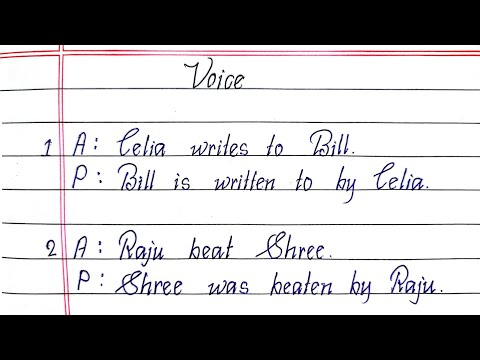 Voice
1 A: Celia writes to Bill.
P: Bill is written to by Celia.
2 A: Raju beat Shree.
P: Shree was beaten by Raju.